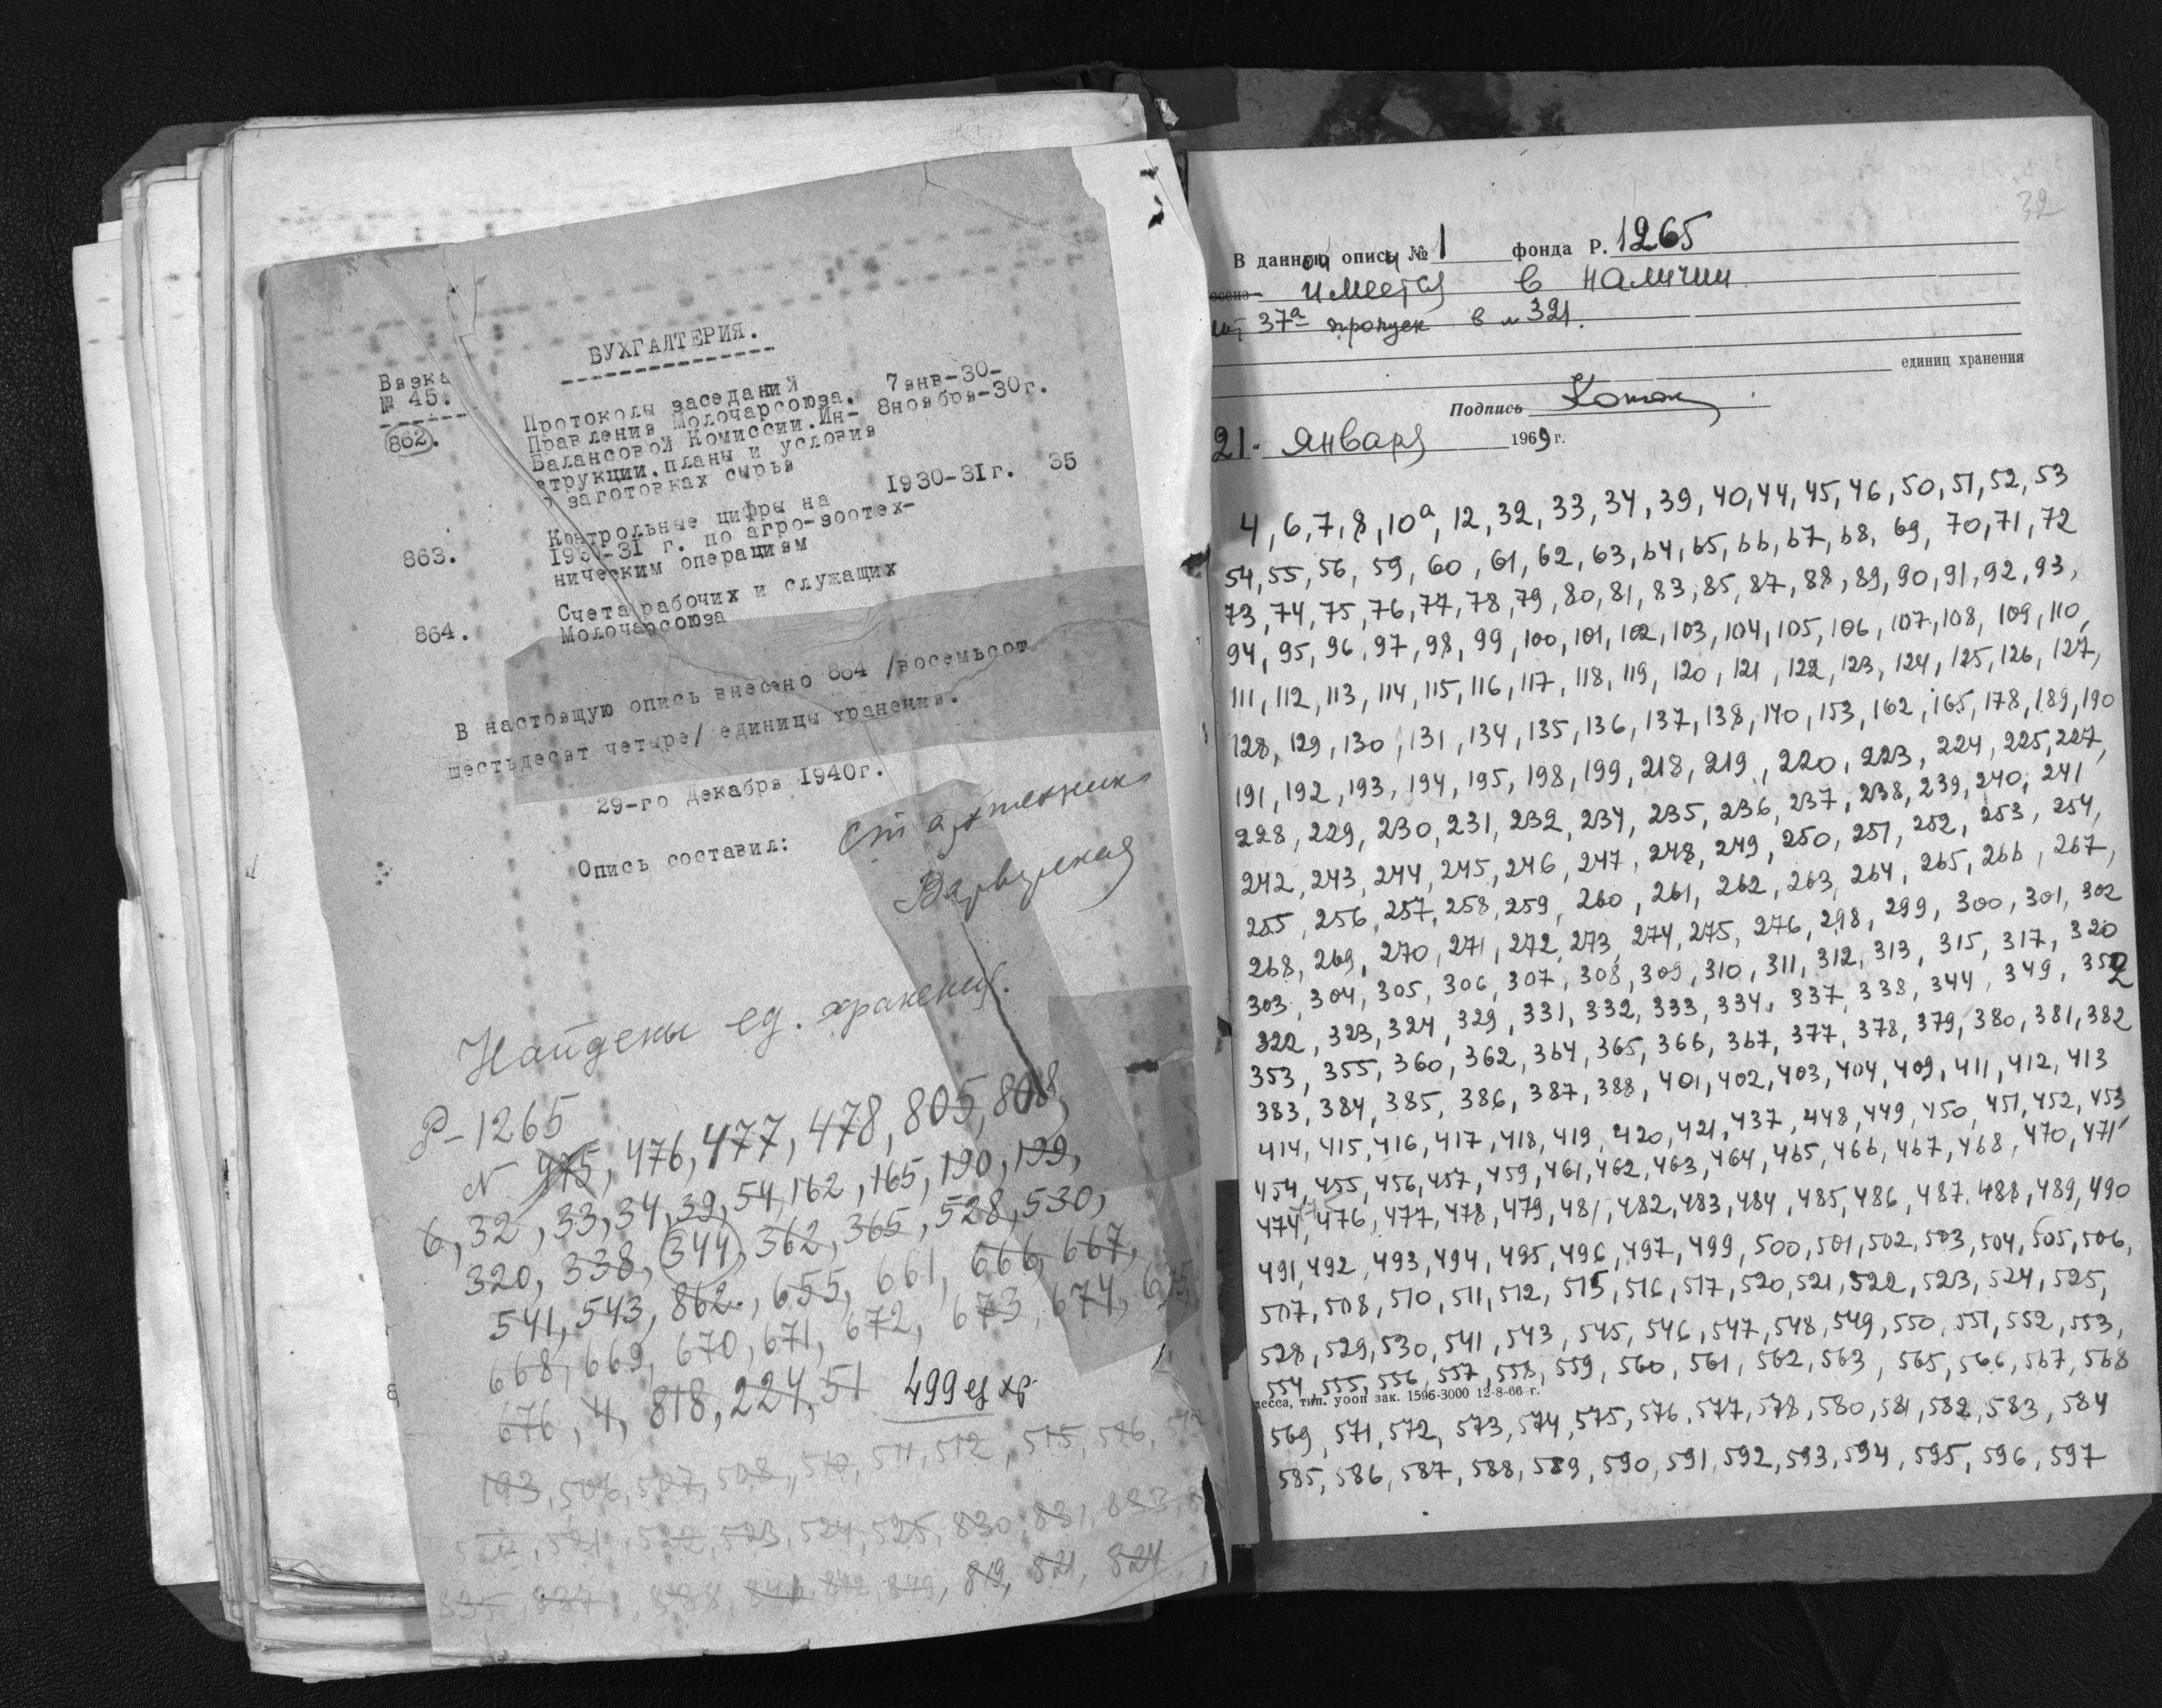 БУХГАЛТЕРИЯ.
Вязка
№ 45.
862.
Протоколы заседаний 7янв-30-
Правления Молочарсоюза. 8ноября-30г.
Балансовой Комиссии. Ин-
струкции. планы и условия
о заготовках сырья
863.
Контрольные цифры на 1930-31г. 35
1930-31 г. по агро-зоотех-
ническим операциям
864.
Счета рабочих и служащих
Молочарсоюза
В настоящую опись внесено 864 /восемьсот
шестьдесят четыре/ единицы хранения.
29-го Декабря 1940г.
Опись составил: Ст архтехник
Найдены ед. хранения.
Р-1265
N 475, 476, 477, 478, 805, 808,
6, 32, 33, 34, 39, 54, 162, 165, 190, 199,
320, 338, 344, 362, 365, 528, 530,
541, 543, 862., 655, 661, 666, 667,
668, 669, 670, 671, 672, 673, 674, 675
676, 4, 818, 224, 51 499 ед хр.
193, 506, 507, 508, 510, 511, 512, 515, 516,
521, 522, 523, 524, 525, 830, 831, 833,
835, 837, 838, 849, 819, 821, 824
32
В данной описи № 1 фонда Р. 1265
имеется в наличии
лит 37а пропуск в № 321.
единиц хранения
Подпись
21 " января 1969 г.
4, 6, 7, 8, 10а, 12, 32, 33, 34, 39, 40, 44, 45, 46, 50, 51, 52, 53
54, 55, 56, 59, 60, 61, 62, 63, 64, 65, 66, 67, 68, 69, 70, 71, 72
73, 74, 75, 76, 77, 78, 79, 80, 81, 83, 85, 87, 88, 89, 90, 91, 92, 93,
94, 95, 96, 97, 98, 99, 100, 101, 102, 103, 104, 105, 106, 107, 108, 109, 110,
111, 112, 113, 114, 115, 116, 117, 118, 119, 120, 121, 122, 123, 124, 125, 126, 127,
128, 129, 130, 131, 134, 135, 136, 137, 138, 140, 153, 162, 165, 178, 189, 190
191, 192, 193, 194, 195, 198, 199, 218, 219, 220, 223, 224, 225, 227,
228, 229, 230, 231, 232, 234, 235, 236, 237, 238, 239, 240, 241
242, 243, 244, 245, 246, 247, 248, 249, 250, 251, 252, 253, 254,
255, 256, 257, 258, 259, 260, 261, 262, 263, 264, 265, 266, 267,
268, 269, 270, 271, 272, 273, 274, 275, 276, 298, 299, 300, 301, 302
303, 304, 305, 306, 307, 308, 309, 310, 311, 312, 313, 315, 317, 320
322, 323, 324, 329, 331, 332, 333, 334, 337, 338, 344, 349, 352
353, 355, 360, 362, 364, 365, 366, 367, 377, 378, 379, 380, 381, 382
383, 384, 385, 386, 387, 388, 401, 402, 403, 404, 409, 411, 412, 413
414, 415, 416, 417, 418, 419, 420, 421, 437, 448, 449, 450, 451, 452, 453,
454, 455, 456, 457, 459, 461, 462, 463, 464, 465, 466, 467, 468, 470, 471
474, 476, 477, 478, 479, 481, 482, 483, 484, 485, 486, 487, 488, 489, 490
491, 492, 493, 494, 495, 496, 497, 499, 500, 501, 502, 503, 504, 505, 506,
507, 508, 510, 511, 512, 515, 516, 517, 520, 521, 522, 523, 524, 525,
528, 529, 530, 541, 543, 545, 546, 547, 548, 549, 550, 551, 552, 553,
554, 555, 556, 557, 558, 559, 560, 561, 562, 563, 565, 566, 567, 568
десса, тип. уооп зак. 1596-3000 12-8-66 г.
569, 571, 572, 573, 574, 575, 576, 577, 578, 580, 581, 582, 583, 584
585, 586, 587, 588, 589, 590, 591, 592, 593, 594, 595, 596, 597